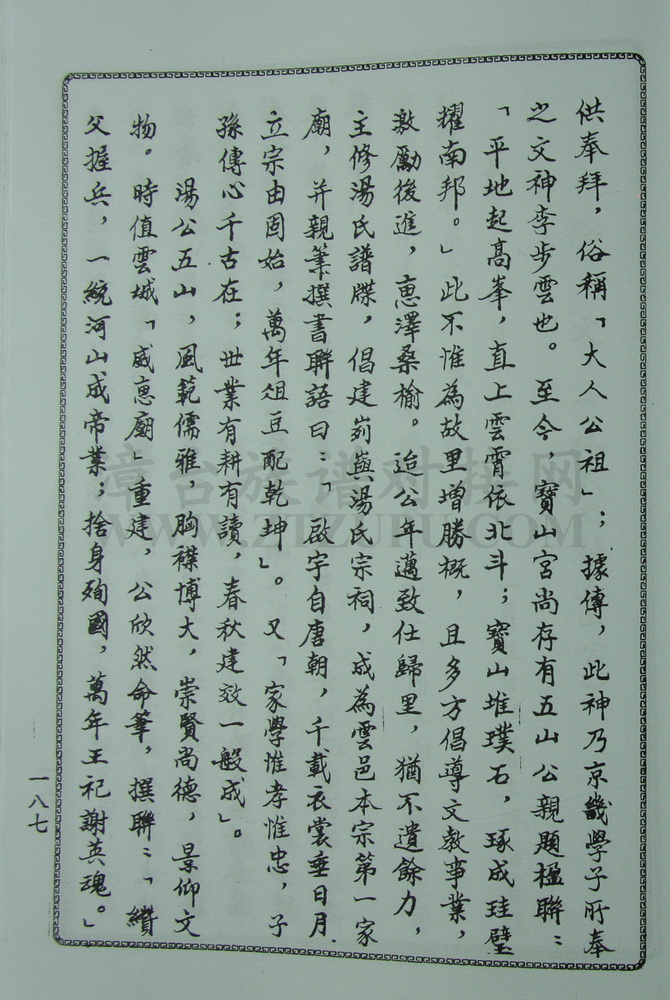 供奉拜，俗稱「大人公祖」；據傳，此神乃京畿學子所奉
之文神李步雲也。至今，寶山宮尚存有五山公親題楹聯：
「平地起高峯，直上雲霄依北斗；寶山堆璞石，琢成珪璧
耀南邦。」此不惟為故里增勝概，且多方倡導文教事業，
激勵後進，惠澤桑榆。迨公年邁致仕歸里，猶不遺餘力，
主修湯氏譜牒，倡建峛嶼湯氏宗祠，成為雲邑本宗第一家
廟，并親筆撰書聯語曰：「啟宇自唐朝，千載衣裳垂日月
立宗由固始，萬年俎豆配乾坤」。又「家學惟孝惟忠，子
孫傳心千古在；世業有耕有讀，春秋建效一般成」。
湯公五山，風範儒雅，胸襟博大，崇賢尚德，景仰文
物。時值雲城「威惠廟」重建，公欣然命筆，撰聯：「纘
父握兵，一統河山成帝業；捨身殉國，萬年王祀謝英魂。」
一八七
漳台族谱对接网
WWW.ZTZUPU.COM